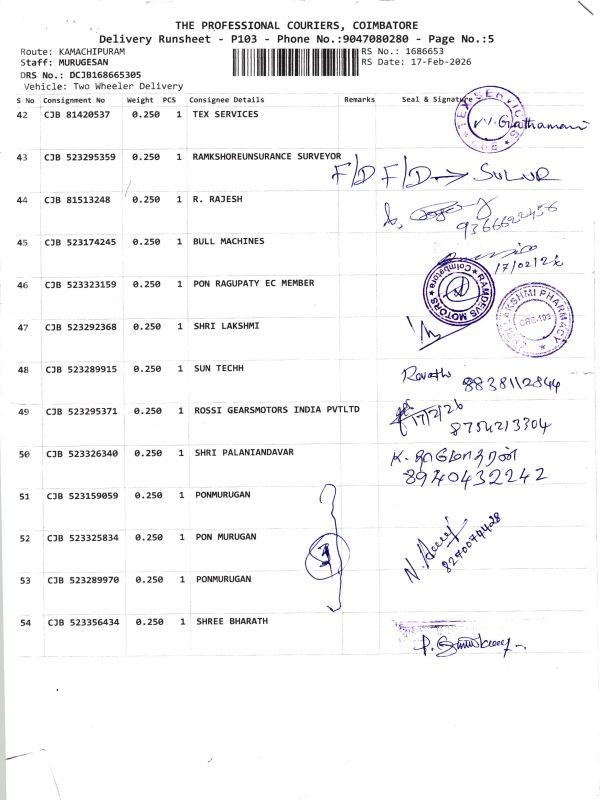 THE PROFESSIONAL COURIERS, COIMBATORE
Delivery Runsheet - P103 - Phone No.:9047080280 - Page No.:5
Route: KAMACHIPURAM RS No.: 1686653
Staff: MURUGESAN RS Date: 17-Feb-2026
DRS No.: DCJB168665305
Vehicle: Two Wheeler Delivery
S No Consignment No Weight PCS Consignee Details Remarks Seal & Signature
42 CJB 81420537 0.250 1 TEX SERVICES
TEX SERVICES
43 CJB 523295359 0.250 1 RAMKSHOREUNSURANCE SURVEYOR
F/D F/D → SULUR
44 CJB 81513248 0.250 1 R. RAJESH
9366622456
45 CJB 523174245 0.250 1 BULL MACHINES
17/02/26
46 CJB 523323159 0.250 1 PON RAGUPATY EC MEMBER
RAMDEVS MOTORS Coimbatore
47 CJB 523292368 0.250 1 SHRI LAKSHMI
SRI LAKSHMI PHARMACY
CBE-103
48 CJB 523289915 0.250 1 SUN TECHH
Revathi 8838112844
49 CJB 523295371 0.250 1 ROSSI GEARSMOTORS INDIA PVTLTD
17/2/26
8754213304
50 CJB 523326340 0.250 1 SHRI PALANIANDAVAR
K. தாமோதரன்
8940432242
51 CJB 523159059 0.250 1 PONMURUGAN
52 CJB 523325834 0.250 1 PON MURUGAN
8270074428
53 CJB 523289970 0.250 1 PONMURUGAN
54 CJB 523356434 0.250 1 SHREE BHARATH